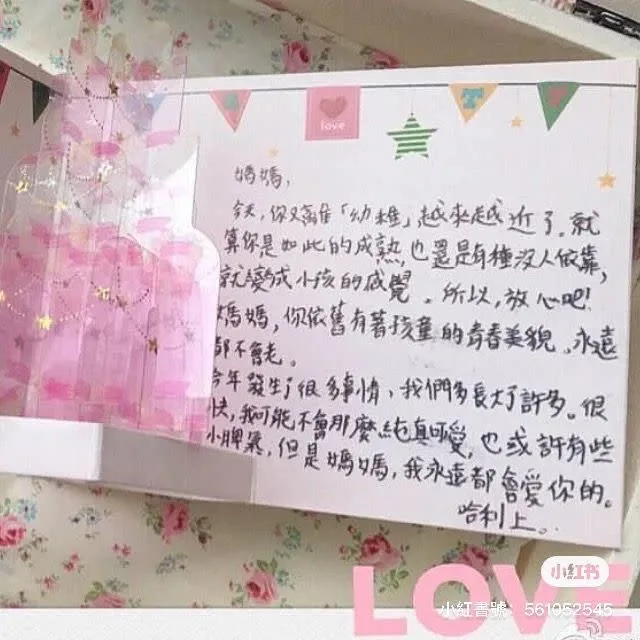 love
T
媽媽,
今天,你又離「幼稚」越來越近了。就
算你是如此的成熟,也還是有種沒人依靠,
就變成小孩的感覺。所以,放心吧!
媽媽,你依舊有著孩童的青春美貌,永遠
都不會老。
今年發生了很多事情,我們多長大了許多。很
快,我可能不會那麼純真可愛,也或許有些
小脾氣,但是媽媽,我永遠都會愛你的。
哈利上。
小红书
LOVE
小紅書號: 561052545